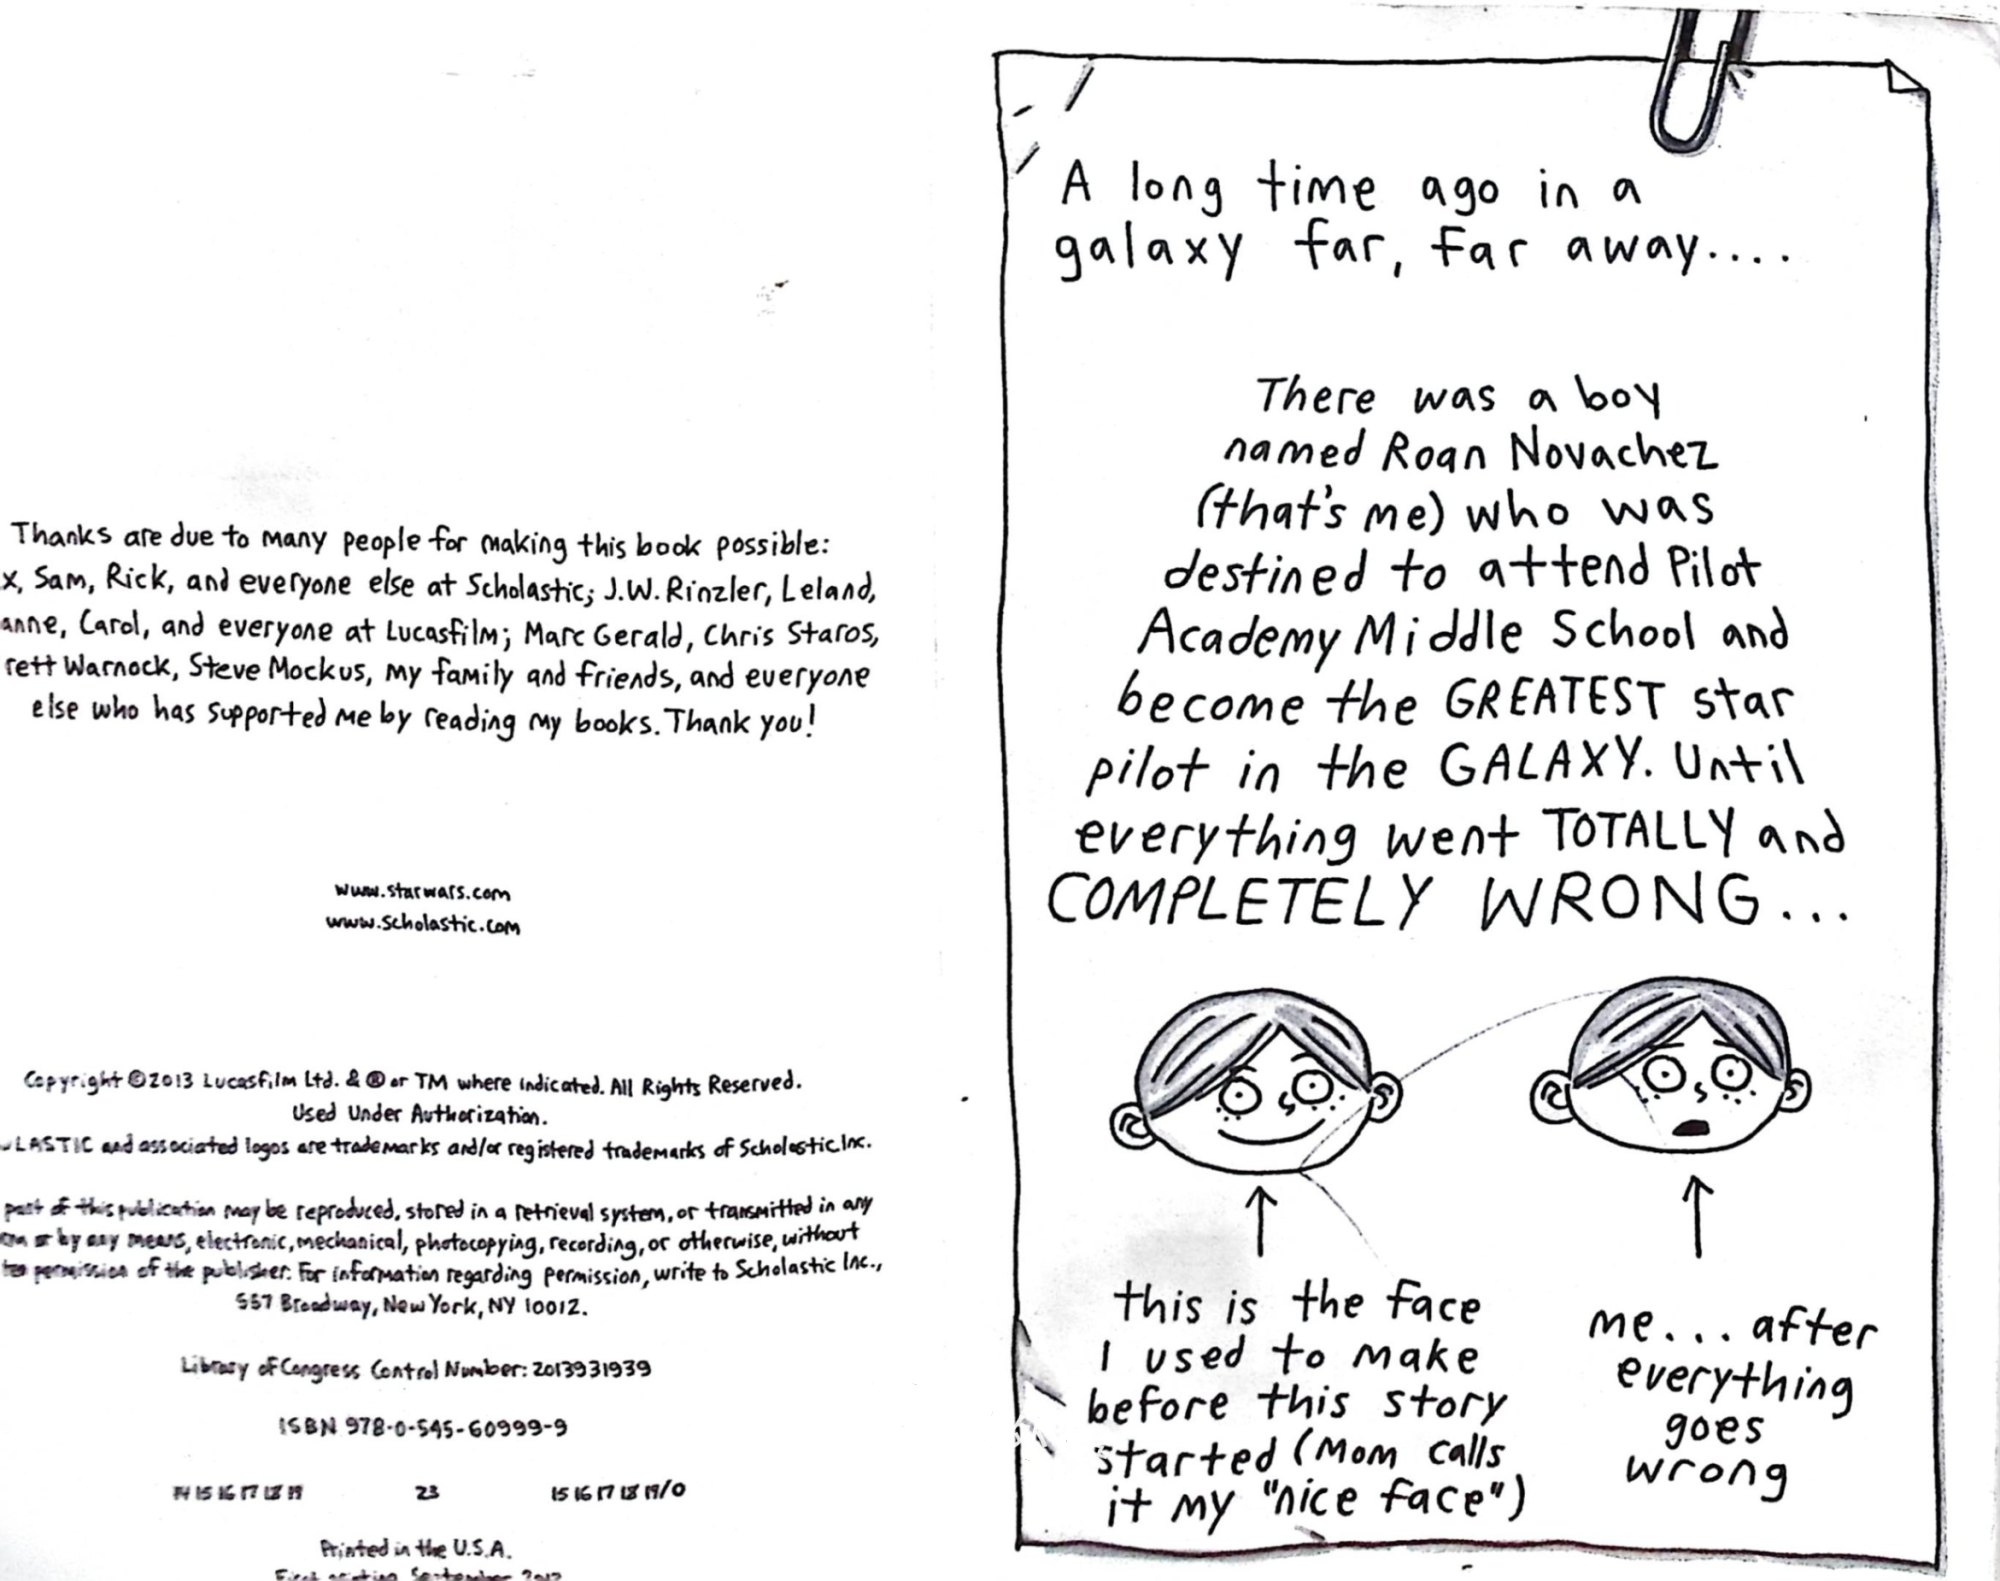 Thanks are due to many people for making this book possible:
x, Sam, Rick, and everyone else at Scholastic; J.W. Rinzler, Leland,
anne, Carol, and everyone at Lucasfilm; Marc Gerald, Chris Staros,
rett Warnock, Steve Mockus, my family and friends, and everyone
else who has supported me by reading my books. Thank you!
www.starwars.com
www.scholastic.com
Copyright ©2013 Lucasfilm Ltd. & ® or TM where indicated. All Rights Reserved.
Used Under Authorization.
LASTIC and associated logos are trademarks and/or registered trademarks of Scholastic Inc.
part of this publication may be reproduced, stored in a retrieval system, or transmitted in any
or by any means, electronic, mechanical, photocopying, recording, or otherwise, without
permission of the publisher. For information regarding permission, write to Scholastic Inc.,
557 Broadway, New York, NY 10012.
Library of Congress Control Number: 2013931939
ISBN 978-0-545-60999-9
14 15 16 17 18 19 23 15 16 17 18 19/0
Printed in the U.S.A.
First printing, September 2013
A long time ago in a
galaxy far, far away....
There was a boy
named Roan Novachez
(that's me) who was
destined to attend Pilot
Academy Middle School and
become the GREATEST star
pilot in the GALAXY. Until
everything went TOTALLY and
COMPLETELY WRONG...
this is the face
I used to make
before this story
started (Mom calls
it my "nice face")
me... after
everything
goes
wrong